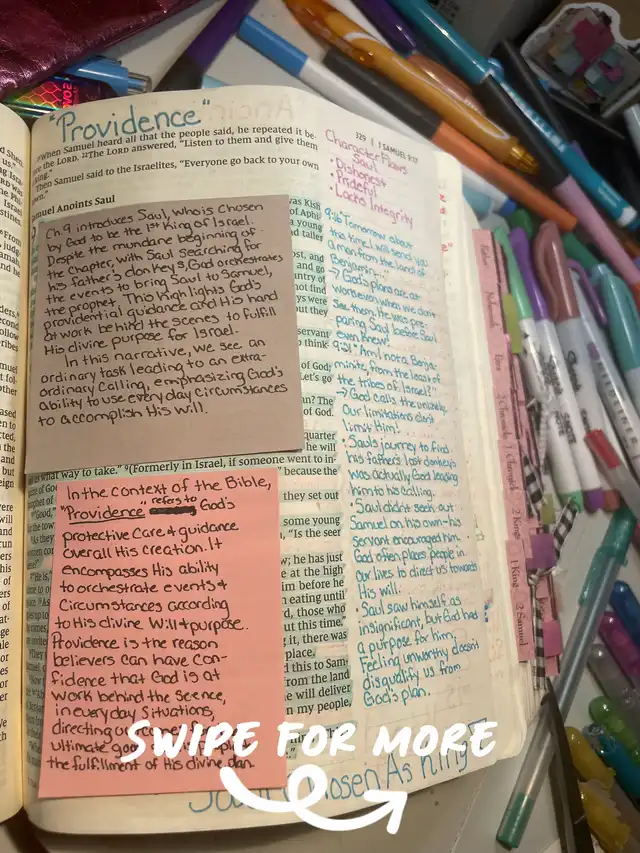 "Providence"
329 | 1 SAMUEL 9:17
21When Samuel heard all that the people said, he repeated it be-
the LORD. 22The LORD answered, "Listen to them and give them
king."
Then Samuel said to the Israelites, "Everyone go back to your own
own."
muel Anoints Saul
Character Flaws
Saul
• Dishonest
• Prideful
• Lacks Integrity
Ch 9 introduces Saul, who is chosen
by God to be the 1st King of Israel.
Despite the mundane beginning of
the Chapter, with Saul searching for
his father's donkeys, God orchestrates
the events to bring Saul to Samuel,
the prophet. This highlights God's
providential guidance and His hand
at work behind the scenes to fulfill
His divine purpose for Israel.
In this narrative, we see an
ordinary task leading to an extra-
ordinary Calling, emphasizing God's
ability to use every day circumstances
to accomplish His will.
was Kish
of Aphi
a young
d taller
ost, and
and go
untry of
not find
ys were
ut they
servant
o think
of God;
Let's go
an? The
of God.
quarter
he will
what way to take." 9(Formerly in Israel, if someone went to in-
because the
they set out
some young
"Is the seer
w; he has just
e at the high
im before he
n eating until
rd, those who
ut this time."
it, there was
place.
d this to Sam-
from the land
e will deliver
n my people,
9:16 "Tomorrow about
this time, I will send you
a man from the land of
Benjamin..."
→ God's plans are at
work even when we don't
see them. He was pre-
paring Saul before Saul
even knew!
9:21 "Am I not a Benja-
minite, from the least of
the tribes of Israel?"
→ God calls the unlikely.
Our limitations don't
limit Him!
• Saul's journey to find
his father's lost donkeys
was actually God leading
him to his calling.
• Saul didn't seek out
Samuel on his own - his
Servant encouraged him.
God often places people in
our lives to direct us towards
His will.
• Saul saw himself as
insignificant, but God had
a purpose for him.
Feeling unworthy doesn't
disqualify us from
God's plan.
In the context of the Bible,
"Providence" refers to God's
protective Care & guidance
over all His creation. It
encompasses His ability
to orchestrate events &
Circumstances according
to His divine Will & purpose.
Providence is the reason
believers can have con-
fidence that God is at
work behind the Scence,
in every day Situations,
directing
ultimate
the fulfillment of His divine plan.
Chosen As King
SWIPE FOR MORE
Ruth
2 Chronicles
1 Chronicles
2 Kings
1 King
2 Samuel